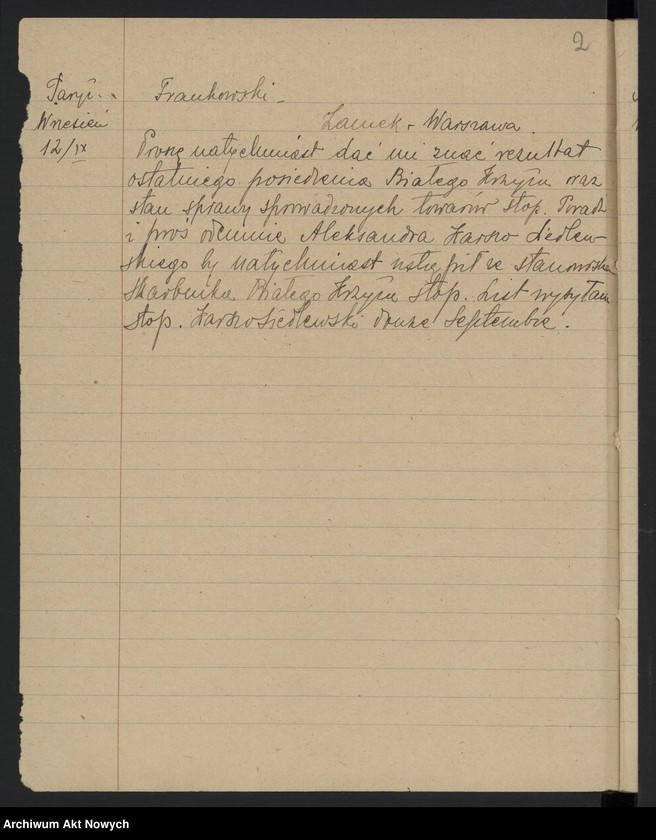 2
Paryż.
Wrzesień
12/IX
Frankowski –
Zamek – Warszawa.
Proszę natychmiast dać mi znać rezultat
ostatniego posiedzenia Białego Krzyża oraz
stan sprawy sprowadzonych towarów stop. Poradź
i proś odemnie Aleksandra Karszo Siedlew-
skiego by natychmiast ustąpił ze stanowiska
skarbnika Białego Krzyża stop. List wysyłam
stop. Karszo Siedlewski douze Septembre.
Archiwum Akt Nowych